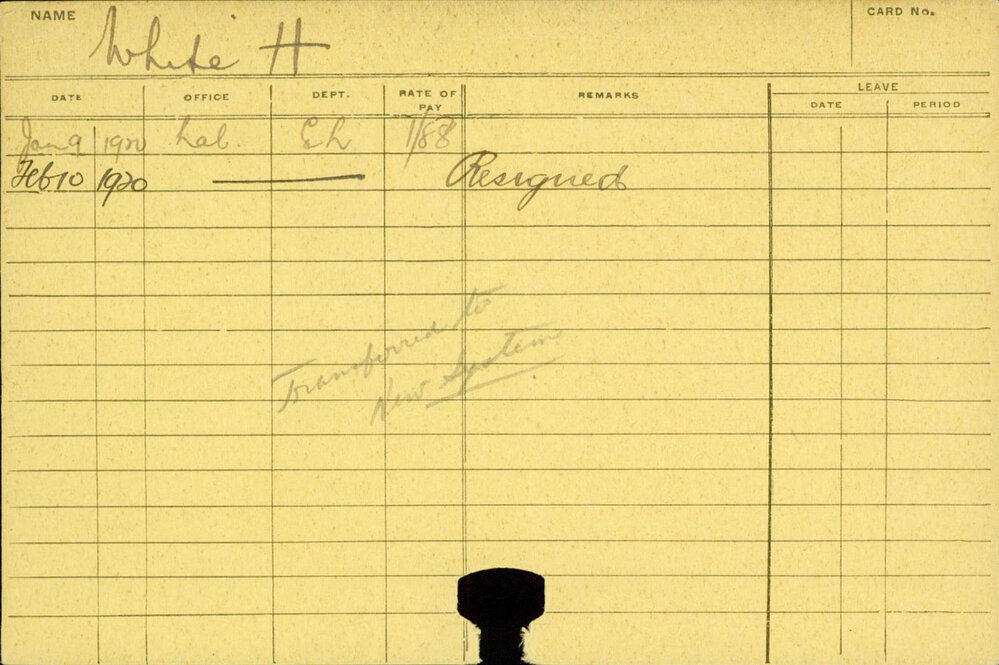 NAME White H CARD No.
DATE OFFICE DEPT. RATE OF PAY REMARKS LEAVE
DATE PERIOD
Jan 9 1920 Lab. EL 1/88
Feb 10 1920 Resigned
Transferred to
New System